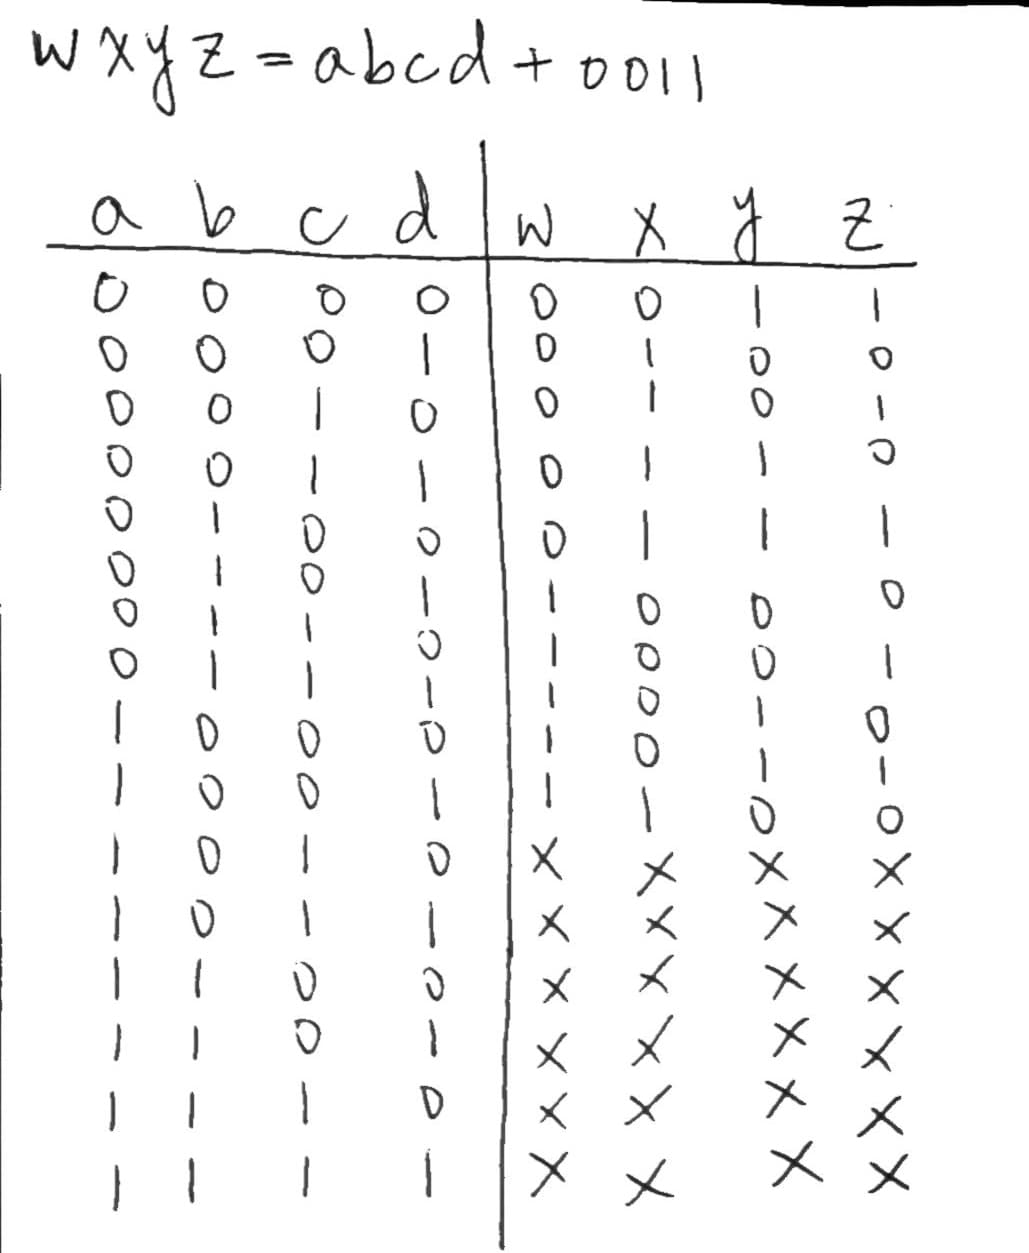 w x y z = a b c d + 0 0 1 1
a b c d w x y z
0 0 0 0 0 0 1 1
0 0 0 1 0 1 0 0
0 0 1 0 0 1 0 1
0 0 1 1 0 1 1 0
0 1 0 0 0 1 1 1
0 1 0 1 1 0 0 0
0 1 1 0 1 0 0 1
0 1 1 1 1 0 1 0
1 0 0 0 1 0 1 1
1 0 0 1 1 1 0 0
1 0 1 0 x x x x
1 0 1 1 x x x x
1 1 0 0 x x x x
1 1 0 1 x x x x
1 1 1 0 x x x x
1 1 1 1 x x x x